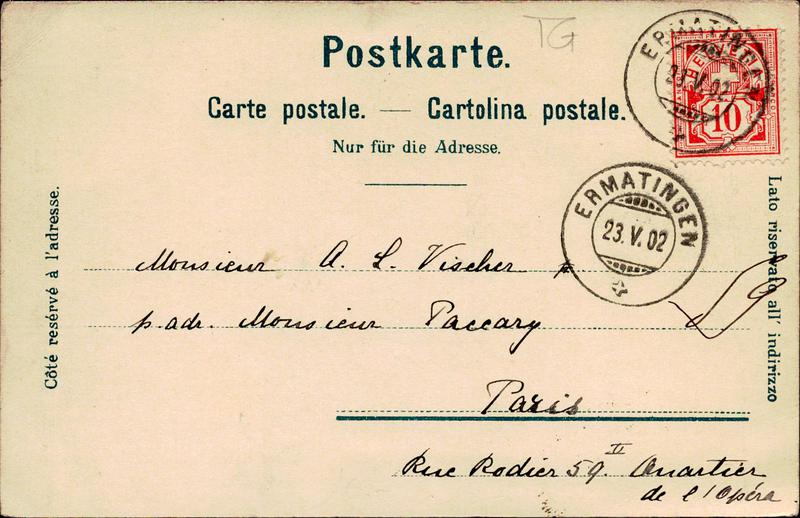 TG
Postkarte.
Carte postale. — Cartolina postale.
Nur für die Adresse.
Côté reservé à l'adresse.
Lato riservato all' indirizzo
ERMATINGEN
23.V.02
HELVETIA
10
ERMATINGEN
23.V.02
Monsieur A. L. Vischer
p. adr. Monsieur Paccary
Paris
Rue Rodier 59. II Quartier
de l'Opéra
59